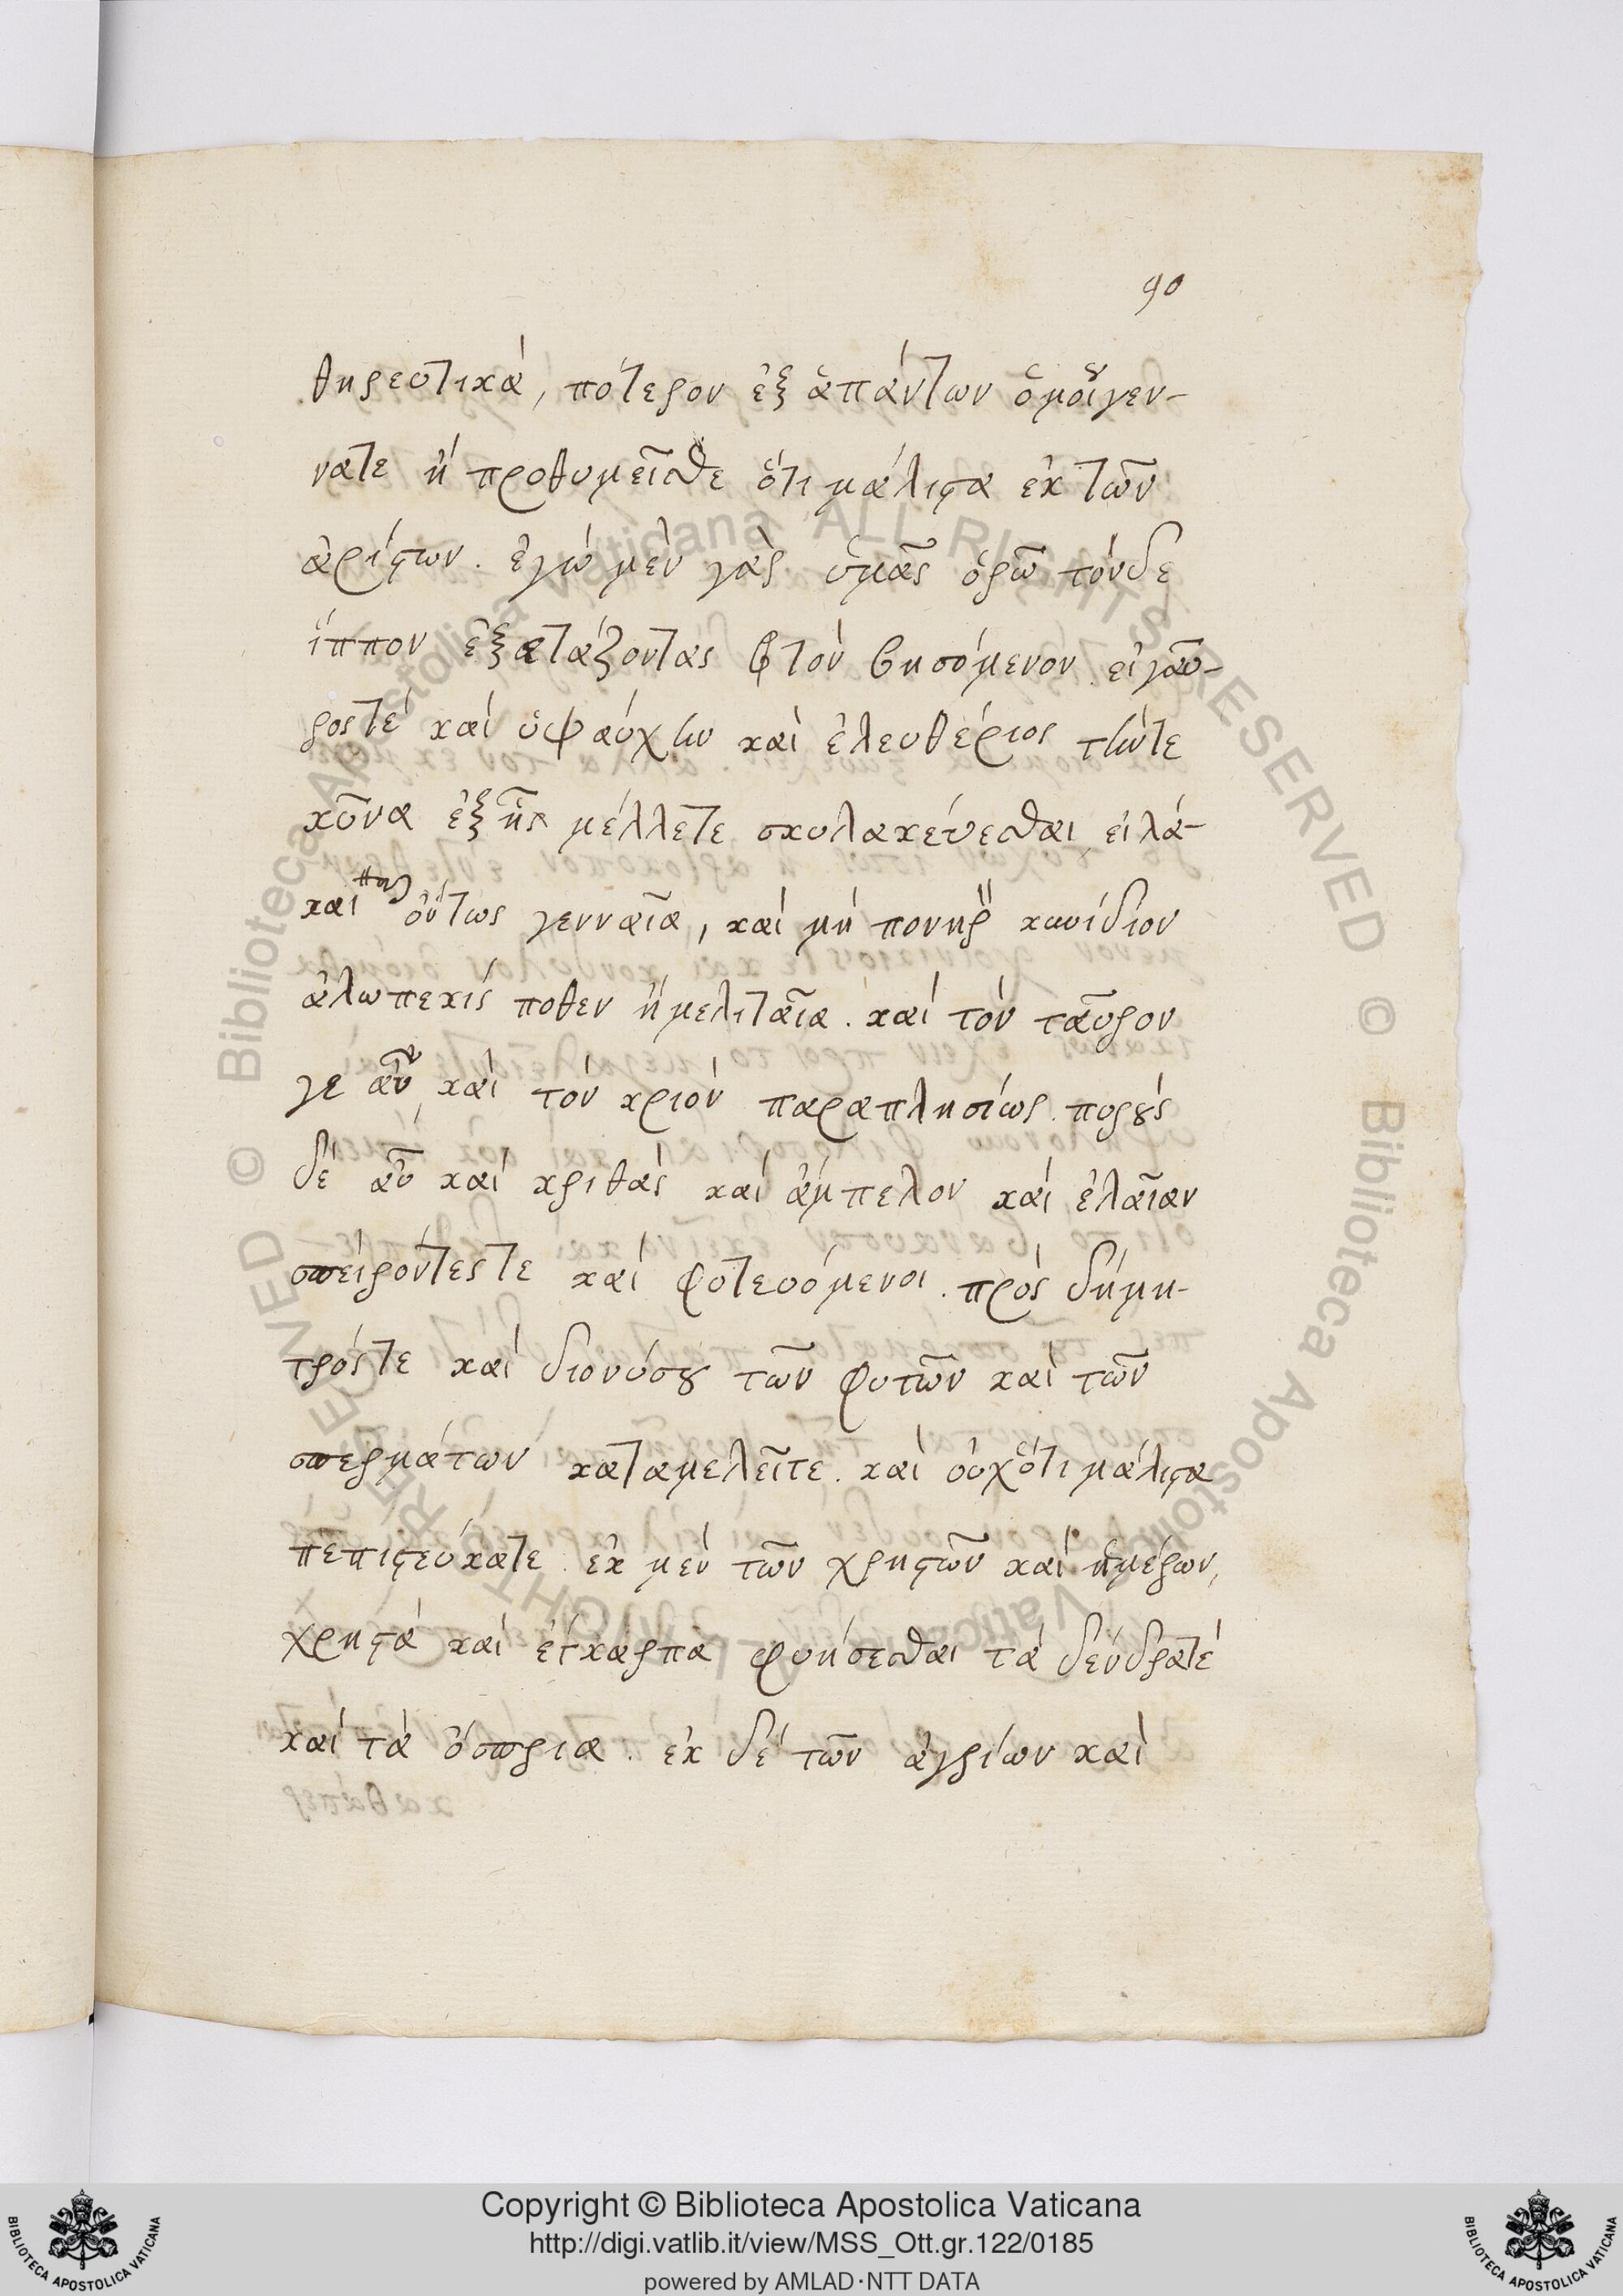 90
θηρευτικὰ, πότερον ἐξ ἁπάντων ὁμοίγεν-
νατε ἢ προθυμεῖσθε ὅτι μάλιστα ἐκ τῶν
ἀρίστων. ἐγὼ μὲν γὰρ ὑμᾶς ὁρῶ τόνδε
ἵππον ἐξετάζοντας τὸν βησόμενον. εἰ γαῦ-
ρος τὲ καὶ ὑψαύχην καὶ ἐλευθέριος τήντε
κῦνα ἐξ ἧς μέλλετε σκυλακεύεσθαι, εἰ λά-
και οὕτως γενναῖα, καὶ μὴ πονηρὸν κυνίδιον
ἀλωπεκίς ποθεν ἢ μελιταῖα. καὶ τὸν ταῦρον
γε αὖ καὶ τὸν κριὸν παραπλησίως. πυροὺς
δὲ αὖ καὶ κριθὰς καὶ ἄμπελον καὶ ἐλαῖαν
σπείροντές τε καὶ φυτευόμενοι. πρὸς δήμη-
τρός τε καὶ διονύσου τῶν φυτῶν καὶ τῶν
σπερμάτων καταμελεῖτε. καὶ οὐχ ὅτι μάλιστα
πεπιστεύκατε. ἐκ μὲν τῶν χρηστῶν καὶ ἡμέρων,
χρηστὰ καὶ εὔκαρπα φυήσεσθαι τὰ δένδρατέ
καὶ τὰ ὄσπρια. ἐκ δὲ τῶν ἀγρίων καὶ
Copyright © Biblioteca Apostolica Vaticana
http://digi.vatlib.it/view/MSS_Ott.gr.122/0185
powered by AMLAD·NTT DATA
BIBLIOTECA APOSTOLICA VATICANA
BIBLIOTECA APOSTOLICA VATICANA
© Biblioteca Apostolica Vaticana ALL RIGHTS RESERVED
© Biblioteca Apostolica Vaticana ALL RIGHTS RESERVED